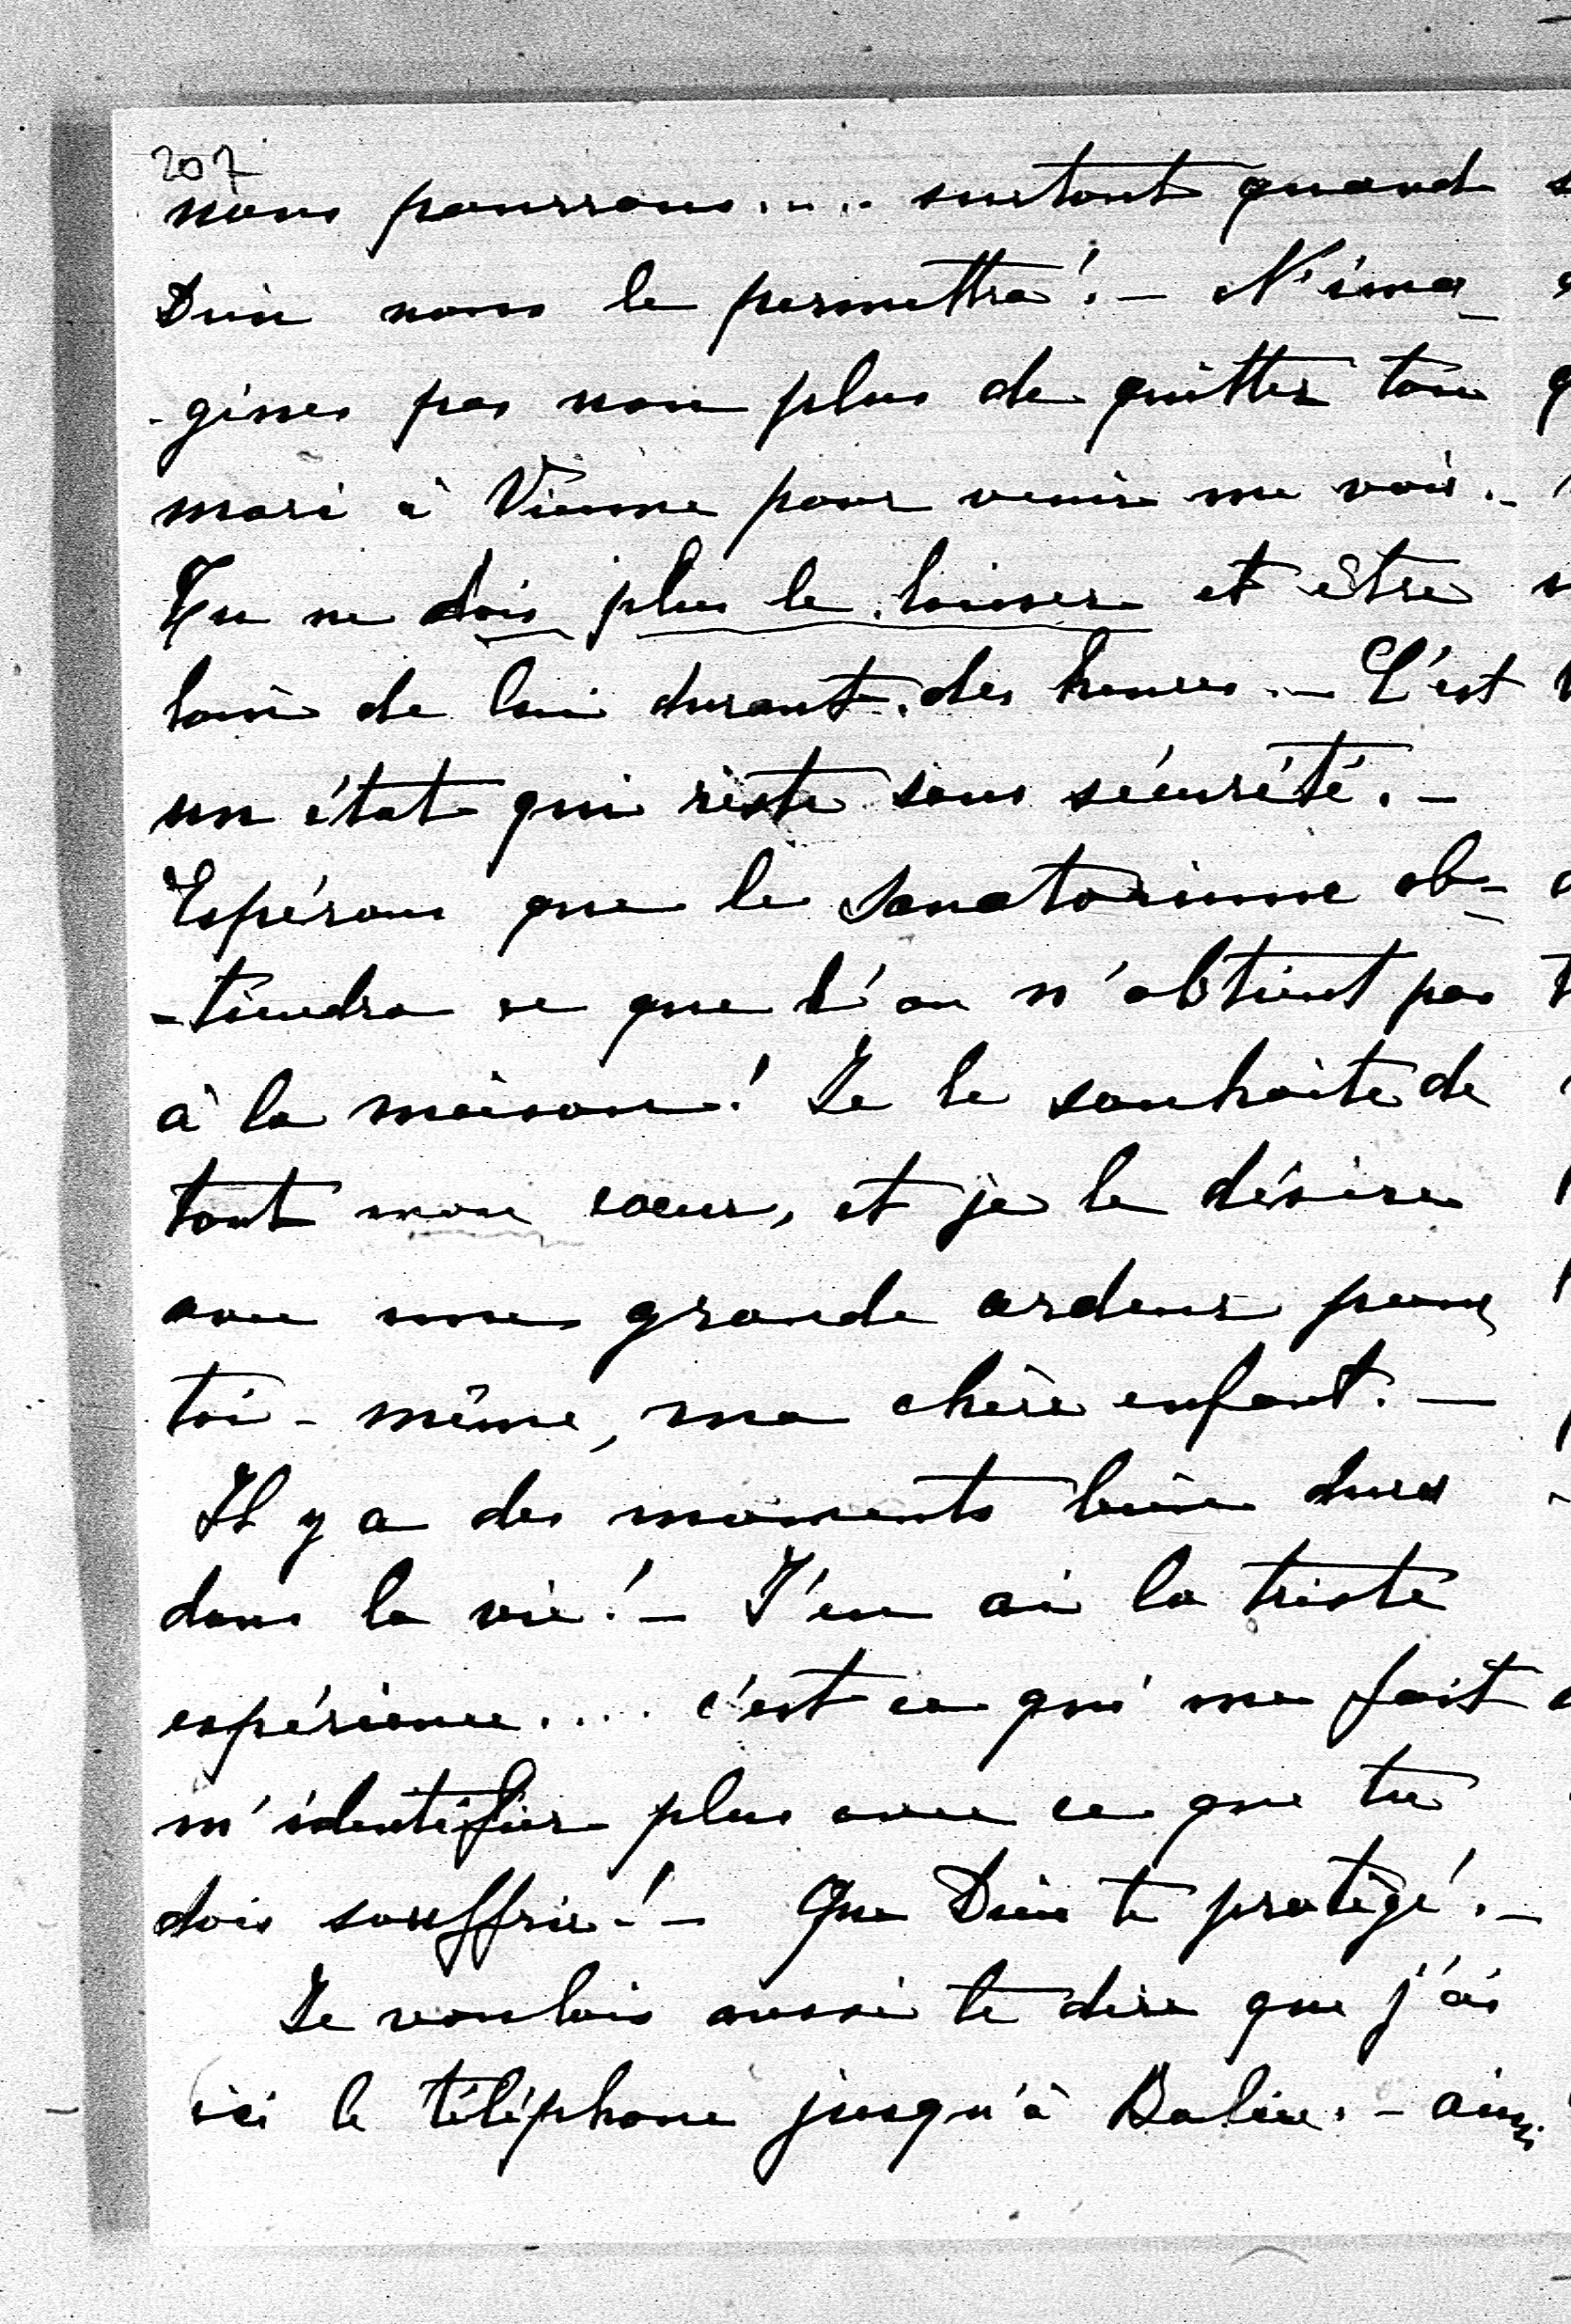 207
nous pourrons..... surtout quand
Dieu nous le permettra! - N'ima_
-gines pas non plus de quitter ton
mari à Vienne pour venir me voir. -
Tu ne dois plus le laisser et être
loin de lui durant des heures. - C'est
un état qui reste sans sécurité. -
Espérons que le Sanatorium ob_
-tiendra ce que l'on n'obtient pas
à la maison! Je le souhaite de
tout mon coeur, et je le désire
avec une grande ardeur pour
toi-même, ma chère enfant. -
Il y a des moments bien durs
dans la vie! - J'en ai la triste
expérience.... c'est ce qui me fait
m'identifier plus avec ce que tu
dois souffrir! - Que Dieu te protège! -
Je voulais aussi te dire que j'ai
ici le téléphone jusqu'à - ainsi